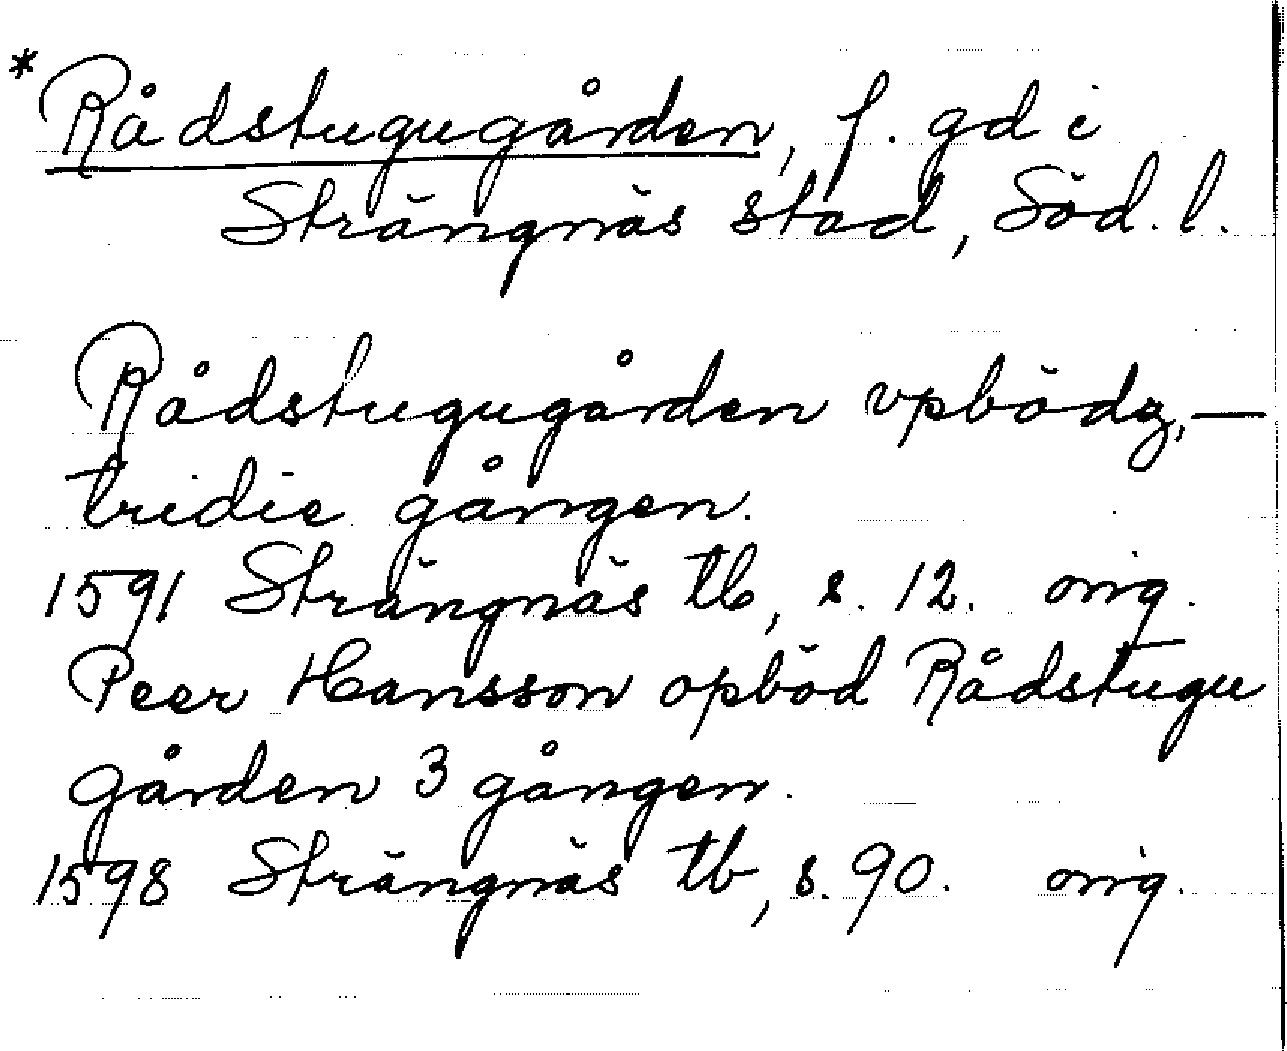 * Rådstugugården, f. gd i
Strängnäs stad, Söd. l.
Rådstugugården vpbödz, —
tridie gången.
1591 Strängnäs tb, s. 12. orig.
Peer Hansson opböd Rådstugu
gården 3 gången.
1598 Strängnäs tb, s. 90. orig.